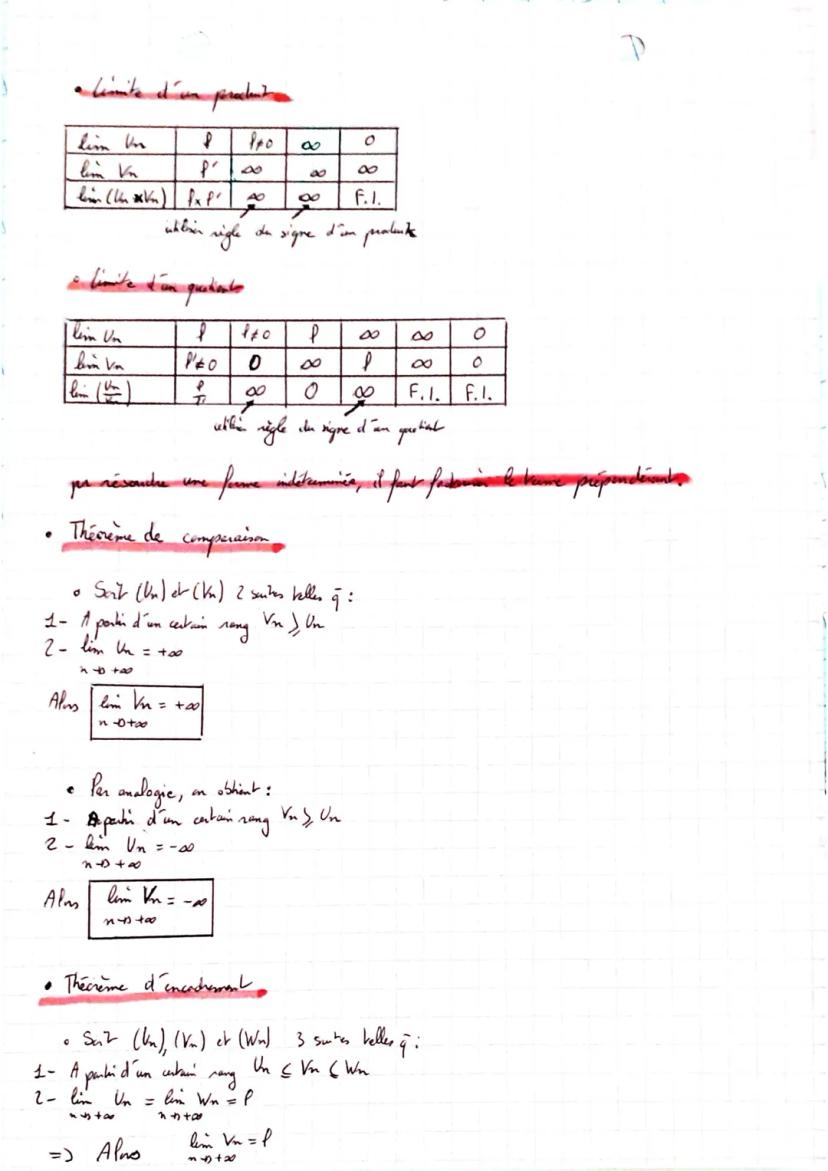 • Limite d'un produit
lim Un | l | l≠0 | ∞ | 0
lim Vn | l' | ∞ | ∞ | ∞
lim (Un × Vn) | l×l' | ∞ | ∞ | F.I.
utiliser règle du signe d'un produit
• Limite d'un quotient
lim Un | l | l≠0 | l | ∞ | ∞ | 0
lim Vn | l'≠0 | 0 | ∞ | l | ∞ | 0
lim (Un/Vn) | l/l' | ∞ | 0 | ∞ | F.I. | F.I.
utiliser règle du signe d'un quotient
pr résoudre une forme indéterminée, il faut factoriser le terme prépondérant.
• Théorème de comparaison
• Soit (Un) et (Vn) 2 suites telles q̄ :
1- A partir d'un certain rang Vn ⩾ Un
2- lim Un = +∞
n→+∞
Alors lim Vn = +∞
n→+∞
• Par analogie, on obtient :
1- A partir d'un certain rang Vn ⩾ Un
2- lim Un = -∞
n→+∞
Alors lim Vn = -∞
n→+∞
• Théorème d'encadrement
• Soit (Un), (Vn) et (Wn) 3 suites telles q̄ :
1- A partir d'un certain rang Un ⩽ Vn ⩽ Wn
2- lim Un = lim Wn = l
n→+∞ n→+∞
=> Alors lim Vn = l
n→+∞